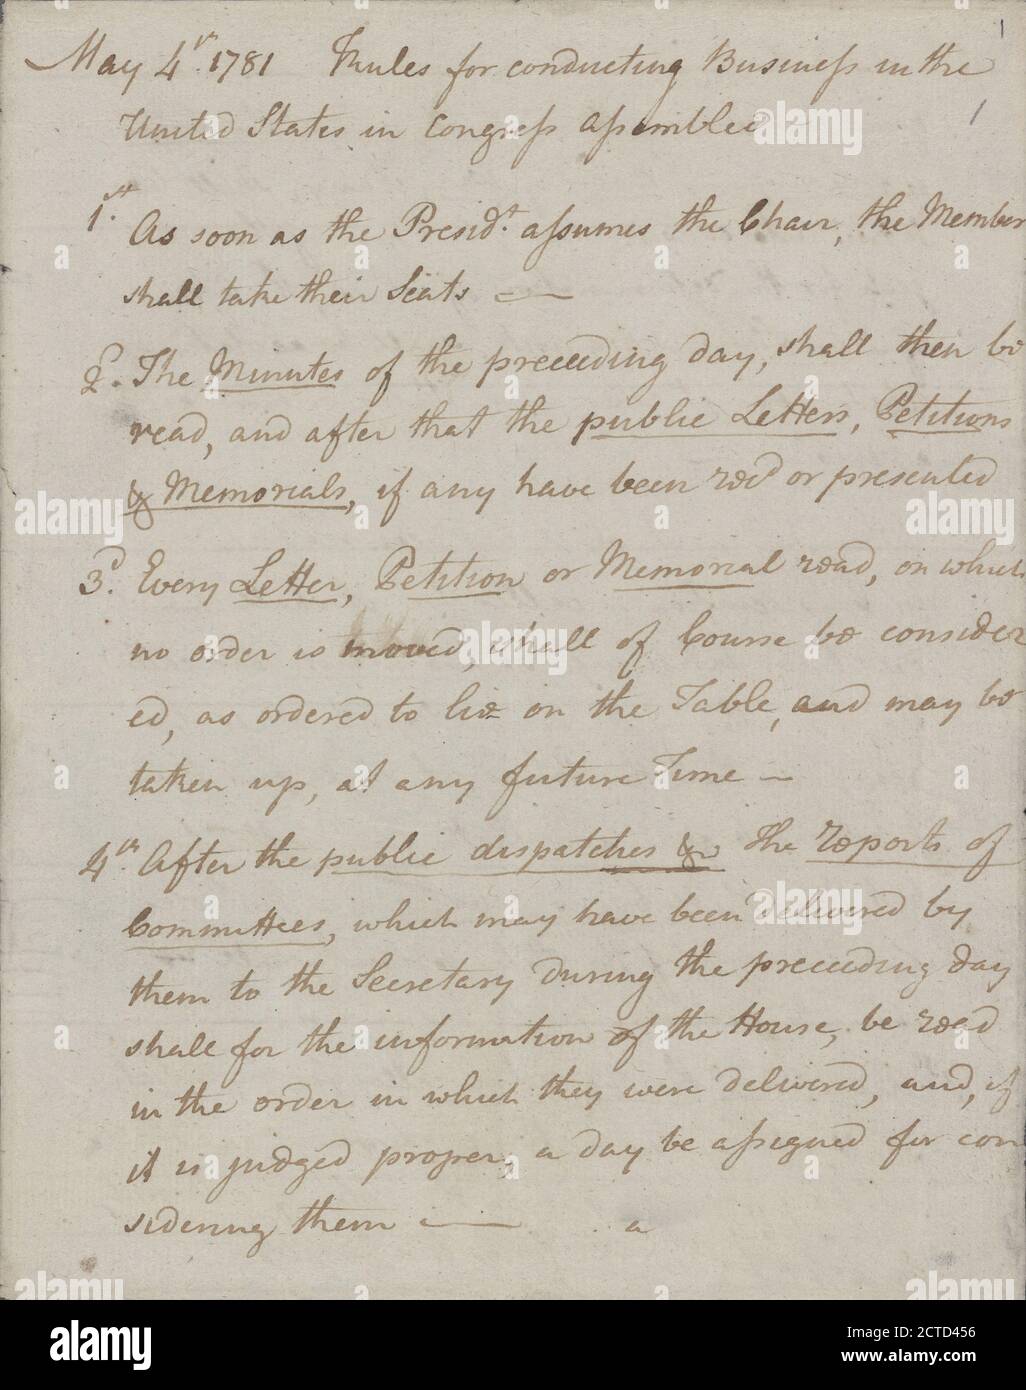 1
May 4th. 1781 Rules for conducting Business in the
1
United States in Congress assembled
1st. As soon as the Presidt. assumes the Chair, the Member
shall take their Seats —
2d. The Minutes of the preceeding day, shall then be
read, and after that the public Letters, Petitions
& Memorials, if any have been recd or presented
3d. Every Letter, Petition or Memorial read, on which
no order is moved, shall of Course be consider
ed, as ordered to lie on the Table, and may be
taken up, at any future Time —
4th. After the public dispatches &c the reports of
Committees, which may have been delivered by
them to the Secretary during the preceeding day
shall for the information of the House, be read
in the order in which they were delivered, and, if
it is judged proper, a day be assigned for con
sidering them —
a
alamy
Image ID: 2CTD456
www.alamy.com